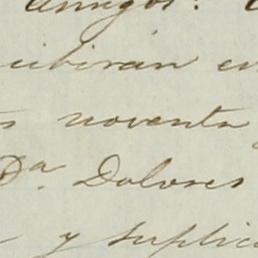 amigos:
cibirán en
s noventa y
Da. Dolores
y suplic